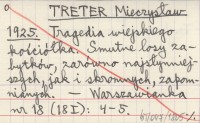 TRETER Mieczysław
1925. Tragedia wiejskiego
kościółka. Smutne losy za-
bytków, zarówno najsłynniej-
szych, jak i skromnych, zapom-
nianych. — Warszawianka
nr 18 (18 I): 4-5.